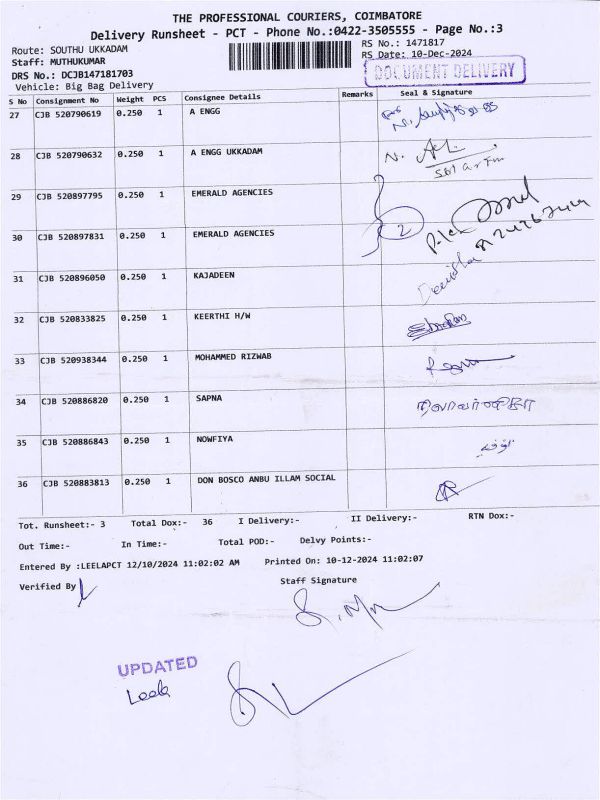 THE PROFESSIONAL COURIERS, COIMBATORE
Delivery Runsheet - PCT - Phone No.:0422-3505555 - Page No.:3
Route: SOUTHU UKKADAM
RS No.: 1471817
Staff: MUTHUKUMAR
RS Date: 10-Dec-2024
DRS No.: DCJB147181703
DOCUMENT DELIVERY
Vehicle: Big Bag Delivery
S No Consignment No Weight PCS Consignee Details Remarks Seal & Signature
27 CJB 520790619 0.250 1 A ENGG
28 CJB 520790632 0.250 1 A ENGG UKKADAM
29 CJB 520897795 0.250 1 EMERALD AGENCIES
30 CJB 520897831 0.250 1 EMERALD AGENCIES 2
31 CJB 520896050 0.250 1 KAJADEEN
32 CJB 520833825 0.250 1 KEERTHI H/W
33 CJB 520938344 0.250 1 MOHAMMED RIZWAB
34 CJB 520886820 0.250 1 SAPNA
35 CJB 520886843 0.250 1 NOWFIYA
36 CJB 520883813 0.250 1 DON BOSCO ANBU ILLAM SOCIAL
Tot. Runsheet:- 3 Total Dox:- 36 I Delivery:- II Delivery:- RTN Dox:-
Out Time:- In Time:- Total POD:- Delvy Points:-
Entered By :LEELAPCT 12/10/2024 11:02:02 AM Printed On: 10-12-2024 11:02:07
Verified By
Staff Signature
UPDATED
Leela